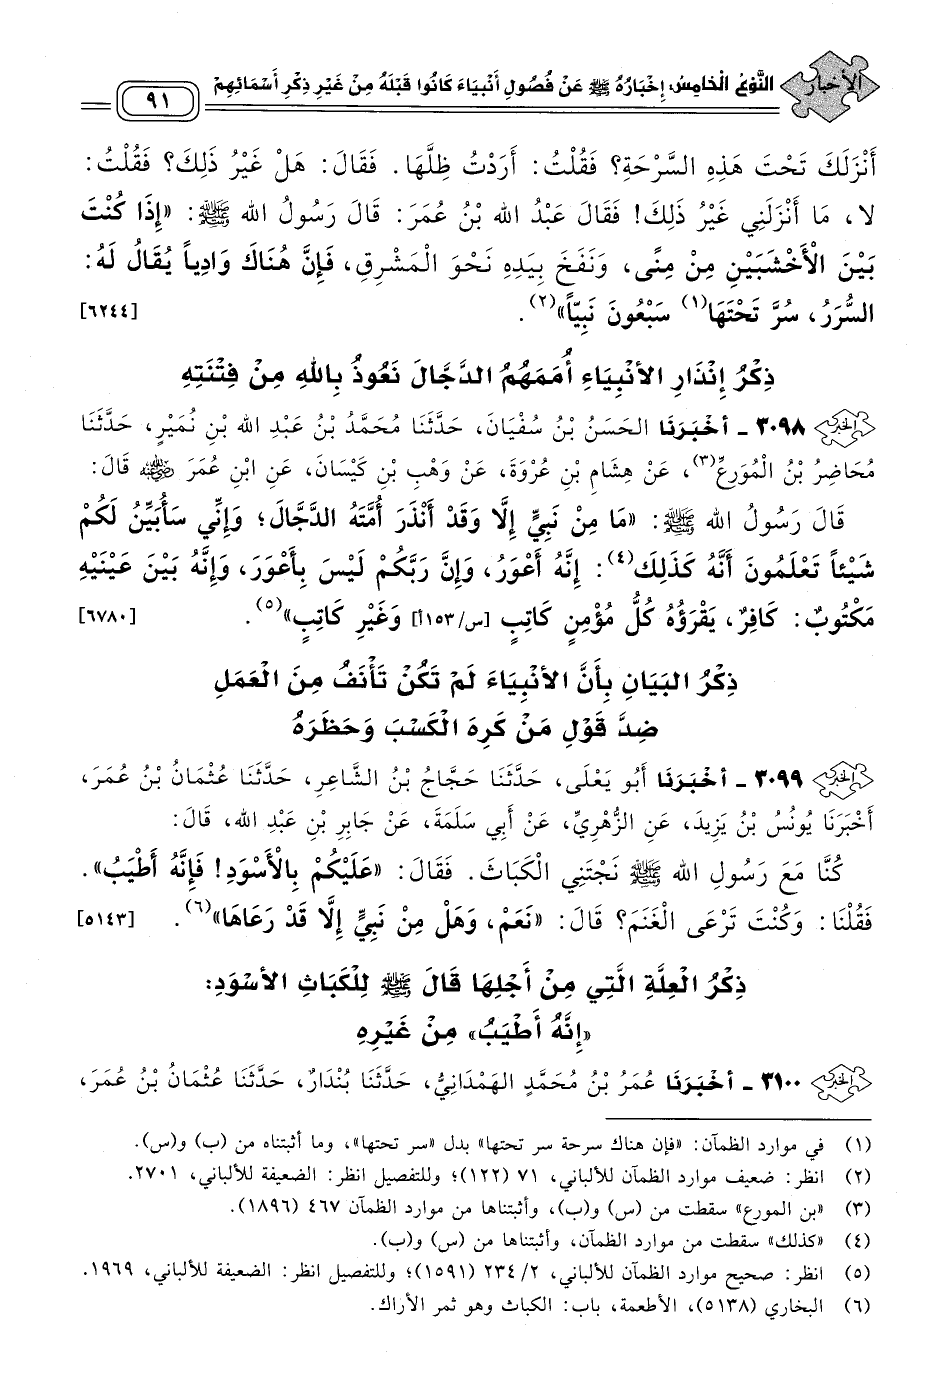 الأخبار
النَّوْعُ الْخَامِسُ: إِخْبَارُهُ ﷺ عَنْ فُصُولِ أَنْبِيَاءَ كَانُوا قَبْلَهُ مِنْ غَيْرِ ذِكْرِ أَسْمَائِهِمْ
٩١
أَنْزَلَكَ تَحْتَ هَذِهِ السَّرْحَةِ؟ فَقُلْتُ: أَرَدْتُ ظِلَّهَا. فَقَالَ: هَلْ غَيْرُ ذَلِكَ؟ فَقُلْتُ:
لا، مَا أَنْزَلَنِي غَيْرُ ذَلِكَ! فَقَالَ عَبْدُ الله بْنُ عُمَرَ: قَالَ رَسُولُ الله ﷺ: «إِذَا كُنْتَ
بَيْنَ الْأَخْشَبَيْنِ مِنْ مِنًى، وَنَفَخَ بِيَدِهِ نَحْوَ الْمَشْرِقِ، فَإِنَّ هُنَاكَ وَادِياً يُقَالُ لَهُ:
السُّرَرُ، سُرَّ تَحْتَهَا(١) سَبْعُونَ نَبِيّاً»(٢). [٦٢٤٤]
ذِكْرُ إِنْذَارِ الأَنْبِيَاءِ أُمَمَهُمُ الدَّجَّالَ نَعُوذُ بِاللهِ مِنْ فِتْنَتِهِ
الخبر ٣٠٩٨ - أخْبَرَنَا الحَسَنُ بْنُ سُفْيَانَ، حَدَّثَنَا مُحَمَّدُ بْنُ عَبْدِ الله بْنِ نُمَيْرٍ، حَدَّثَنَا
مُحَاضِرُ بْنُ الْمُوَرِّعِ(٣)، عَنْ هِشَامِ بْنِ عُرْوَةَ، عَنْ وَهْبِ بْنِ كَيْسَانَ، عَنِ ابْنِ عُمَرَ ﵁ قَالَ:
قَالَ رَسُولُ الله ﷺ: «مَا مِنْ نَبِيٍّ إِلَّا وَقَدْ أَنْذَرَ أُمَّتَهُ الدَّجَّالَ؛ وَإِنِّي سَأُبَيِّنُ لَكُمْ
شَيْئاً تَعْلَمُونَ أَنَّهُ كَذَلِكَ(٤): إِنَّهُ أَعْوَرُ، وَإِنَّ رَبَّكُمْ لَيْسَ بِأَعْوَرَ، وَإِنَّهُ بَيْنَ عَيْنَيْهِ
مَكْتُوبٌ: كَافِرٌ، يَقْرَؤُهُ كُلُّ مُؤْمِنٍ كَاتِبٍ [س/١٥٣أ] وَغَيْرِ كَاتِبٍ»(٥). [٦٧٨٠]
ذِكْرُ البَيَانِ بِأَنَّ الأَنْبِيَاءَ لَمْ تَكُنْ تَأْنَفُ مِنَ الْعَمَلِ
ضِدَّ قَوْلِ مَنْ كَرِهَ الْكَسْبَ وَحَظَرَهُ
الخبر ٣٠٩٩ - أخْبَرَنَا أَبُو يَعْلَى، حَدَّثَنَا حَجَّاجُ بْنُ الشَّاعِرِ، حَدَّثَنَا عُثْمَانُ بْنُ عُمَرَ،
أَخْبَرَنَا يُونُسُ بْنُ يَزِيدَ، عَنِ الزُّهْرِيِّ، عَنْ أَبِي سَلَمَةَ، عَنْ جَابِرِ بْنِ عَبْدِ الله، قَالَ:
كُنَّا مَعَ رَسُولِ الله ﷺ نَجْتَنِي الْكَبَاثَ. فَقَالَ: «عَلَيْكُمْ بِالْأَسْوَدِ! فَإِنَّهُ أَطْيَبُ».
فَقُلْنَا: وَكُنْتَ تَرْعَى الْغَنَمَ؟ قَالَ: «نَعَمْ، وَهَلْ مِنْ نَبِيٍّ إِلَّا قَدْ رَعَاهَا»(٦). [٥١٤٣]
ذِكْرُ الْعِلَّةِ الَّتِي مِنْ أَجْلِهَا قَالَ ﷺ لِلْكَبَاثِ الأَسْوَدِ:
«إِنَّهُ أَطْيَبُ» مِنْ غَيْرِهِ
الخبر ٣١٠٠ - أخْبَرَنَا عُمَرُ بْنُ مُحَمَّدٍ الهَمْدَانِيُّ، حَدَّثَنَا بُنْدَارٌ، حَدَّثَنَا عُثْمَانُ بْنُ عُمَرَ،
(١) في موارد الظمآن: «فإن هناك سرحة سر تحتها» بدل «سر تحتها»، وما أثبتناه من (ب) و(س).
(٢) انظر: ضعيف موارد الظمآن للألباني، ٧١ (١٢٢)؛ وللتفصيل انظر: الضعيفة للألباني، ٢٧٠١.
(٣) «بن المورع» سقطت من (س) و(ب)، وأثبتناها من موارد الظمآن ٤٦٧ (١٨٩٦).
(٤) «كذلك» سقطت من موارد الظمآن، وأثبتناها من (س) و(ب).
(٥) انظر: صحيح موارد الظمآن للألباني، ٢/ ٢٣٤ (١٥٩١)؛ وللتفصيل انظر: الضعيفة للألباني، ١٩٦٩.
(٦) البخاري (٥١٣٨)، الأطعمة، باب: الكباث وهو ثمر الأراك.